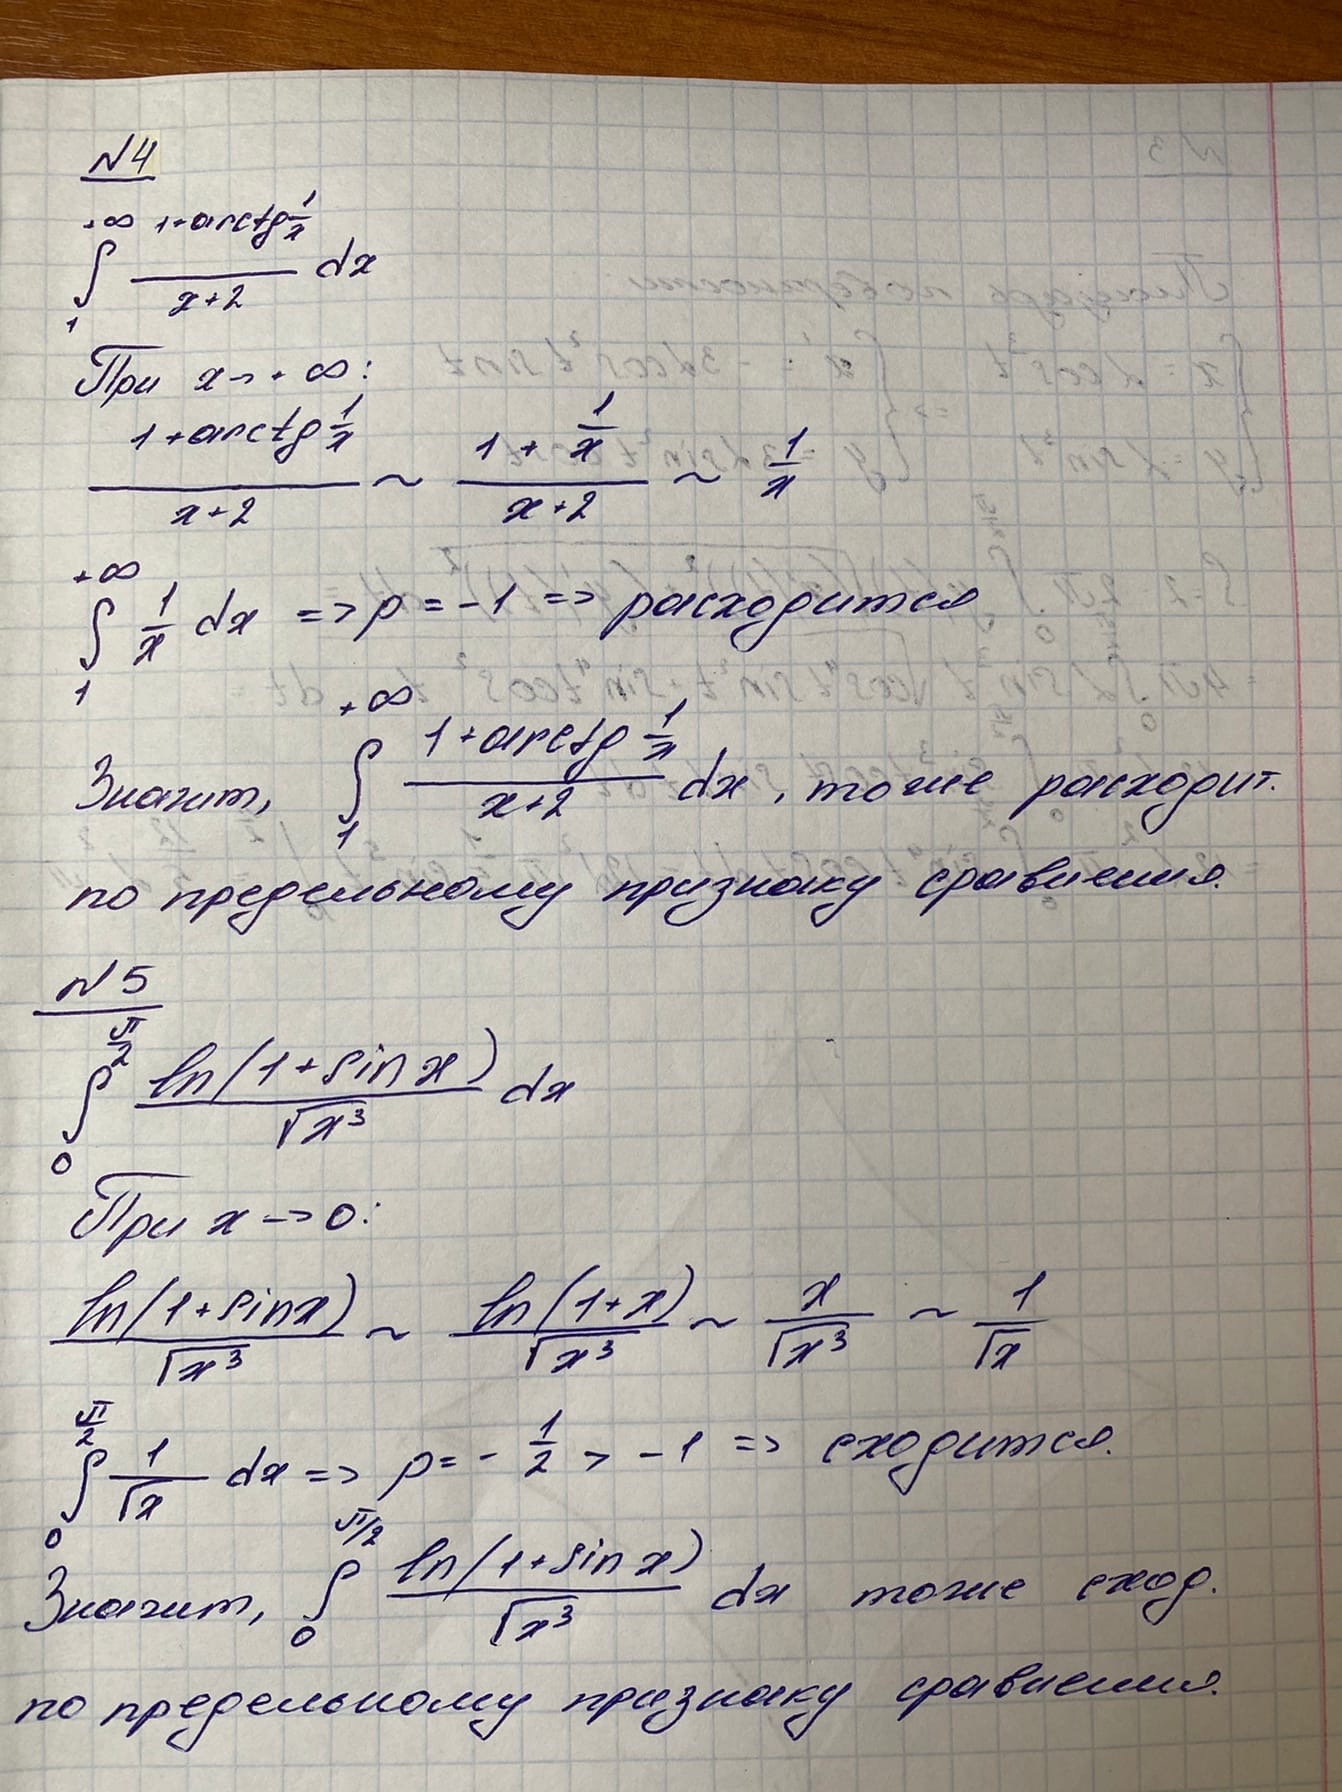 N4
∫₁^{+∞} (1+arctg 1/x)/(x+2) dx
При x→+∞:
(1+arctg 1/x)/(x+2) ~ (1+ 1/x)/(x+2) ~ 1/x
∫₁^{+∞} 1/x dx => p = -1 => расходится
Значит, ∫₁^{+∞} (1+arctg 1/x)/(x+2) dx, тоже расходит.
по предельному признаку сравнения.
N5
∫₀^{π/2} ln(1+sin x)/√x³ dx
При x→0:
ln(1+sinx)/√x³ ~ ln(1+x)/√x³ ~ x/√x³ ~ 1/√x
∫₀^{π/2} 1/√x dx => p = -1/2 > -1 => сходится.
Значит, ∫₀^{π/2} ln(1+sin x)/√x³ dx тоже сход.
по предельному признаку сравнения.